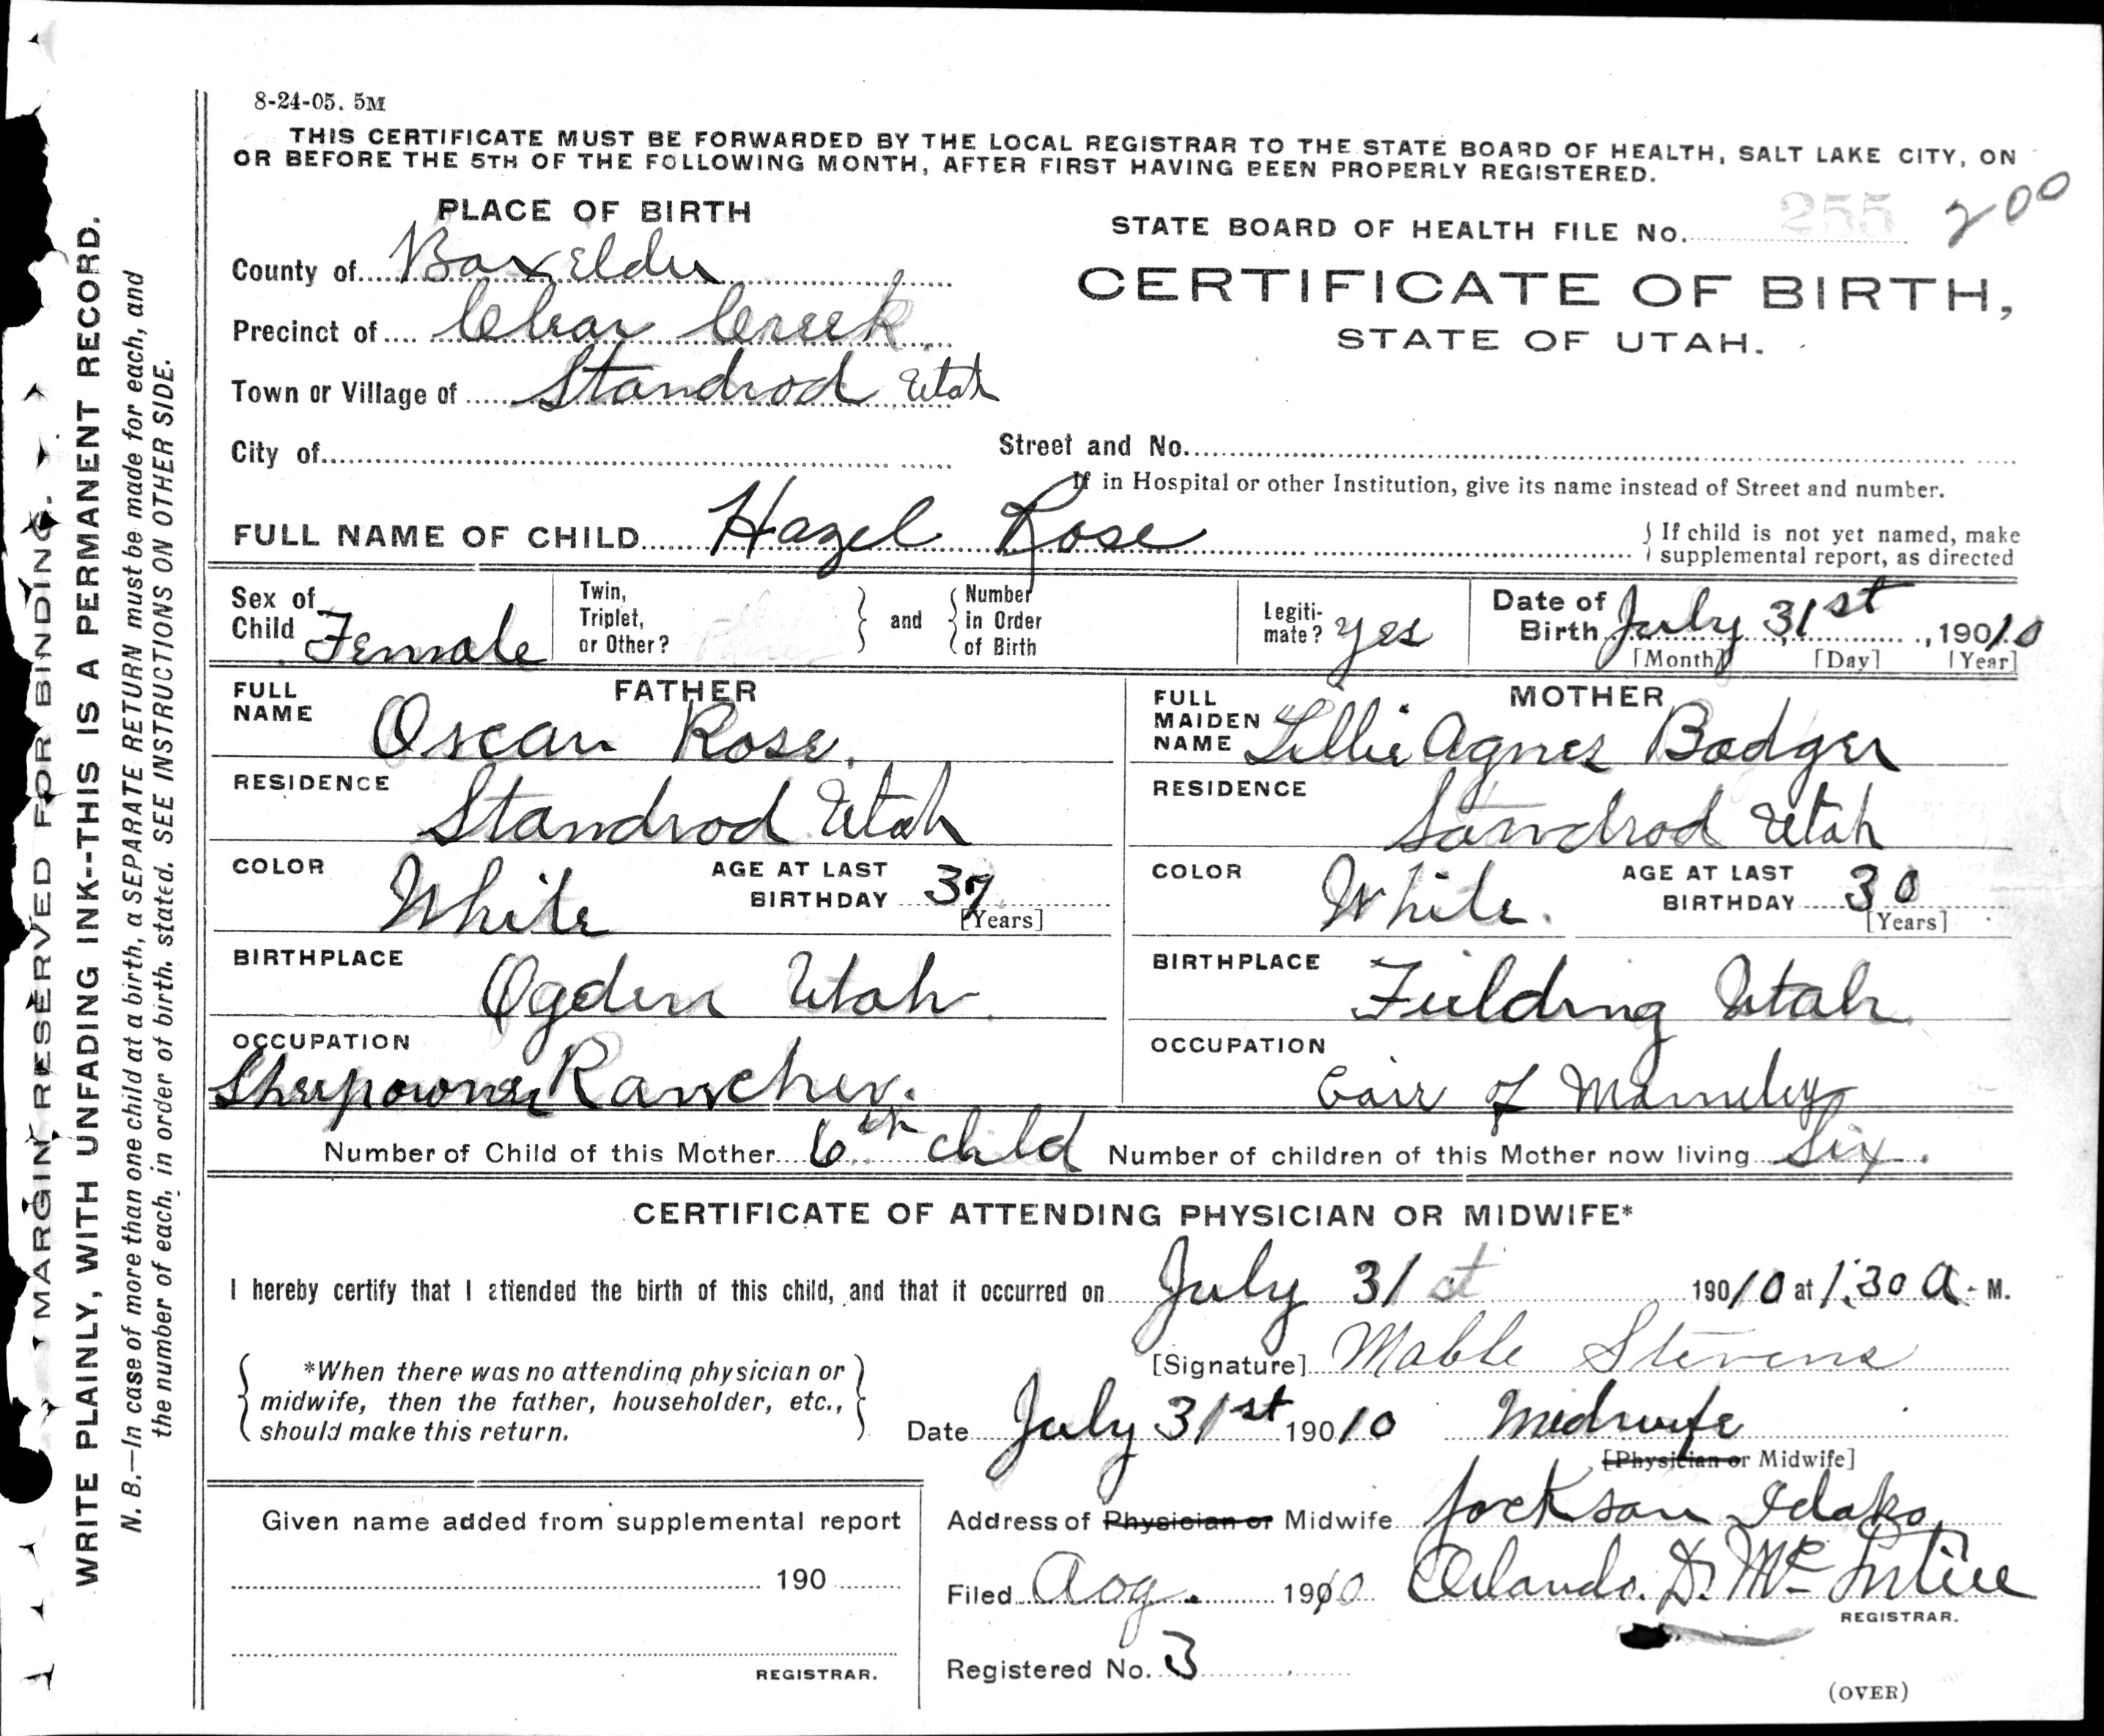 8-24-05. 5M
THIS CERTIFICATE MUST BE FORWARDED BY THE LOCAL REGISTRAR TO THE STATE BOARD OF HEALTH, SALT LAKE CITY, ON
OR BEFORE THE 5TH OF THE FOLLOWING MONTH, AFTER FIRST HAVING BEEN PROPERLY REGISTERED.
PLACE OF BIRTH
STATE BOARD OF HEALTH FILE No. 255 200
County of Boxelder
CERTIFICATE OF BIRTH,
Precinct of Clear Creek
STATE OF UTAH.
Town or Village of Standrod Utah
City of
Street and No.
If in Hospital or other Institution, give its name instead of Street and number.
FULL NAME OF CHILD Hazel Rose
If child is not yet named, make
supplemental report, as directed
Sex of Child Female
Twin, Triplet, or Other?
and
Number in Order of Birth
Legiti-mate? yes
Date of Birth July 31st, 19010
[Month] [Day] [Year]
FATHER
FULL NAME Oscar Rose.
MOTHER
FULL MAIDEN NAME Lillie Agnes Badger
RESIDENCE Standrod Utah
RESIDENCE Sandrod Utah
COLOR White
AGE AT LAST BIRTHDAY 37 [Years]
COLOR White.
AGE AT LAST BIRTHDAY 30 [Years]
BIRTHPLACE Ogden Utah.
BIRTHPLACE Fielding Utah
OCCUPATION Sheepowner Rancher.
OCCUPATION Cair of
Number of Child of this Mother 6th child Number of children of this Mother now living Six.
CERTIFICATE OF ATTENDING PHYSICIAN OR MIDWIFE*
I hereby certify that I attended the birth of this child, and that it occurred on July 31st 19010 at 1:30 A. M.
*When there was no attending physician or
midwife, then the father, householder, etc.,
should make this return.
[Signature] Mable Stevens
Date July 31st 19010 Midwife
[Physician or Midwife]
Given name added from supplemental report
190
REGISTRAR.
Address of Physician or Midwife Jackson Idaho
Filed Aog. 1910 Orlando. D. Mc Intire
REGISTRAR.
Registered No. 3
(OVER)
MARGIN RESERVED FOR BINDING.
WRITE PLAINLY, WITH UNFADING INK--THIS IS A PERMANENT RECORD.
N. B.—In case of more than one child at a birth, a SEPARATE RETURN must be made for each, and
the number of each, in order of birth, stated. SEE INSTRUCTIONS ON OTHER SIDE.